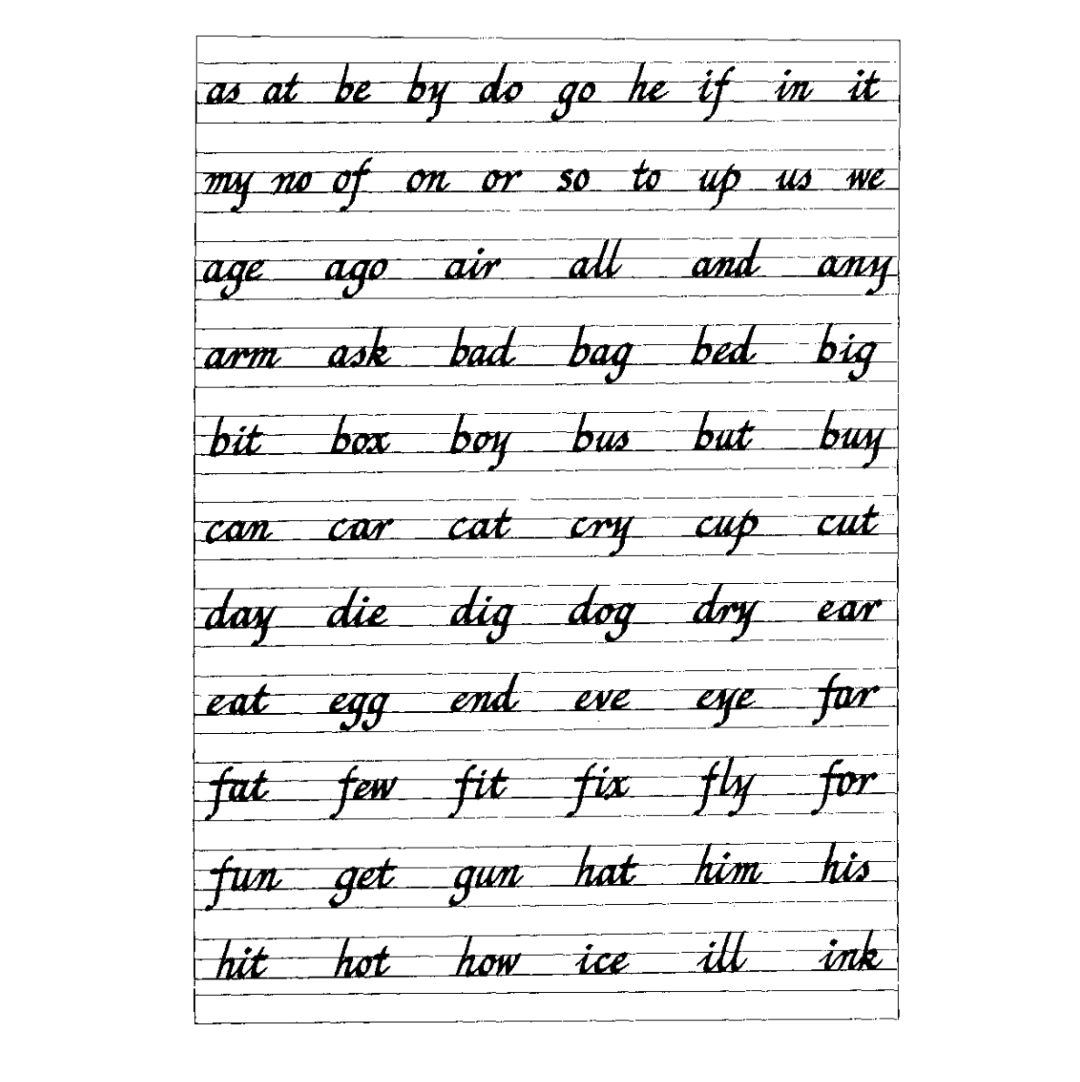 as at be by do go he if in it
my no of on or so to up us we
age ago air all and any
arm ask bad bag bed big
bit box boy bus but buy
can car cat cry cup cut
day die dig dog dry ear
eat egg end eve eye far
fat few fit fix fly for
fun get gun hat him his
hit hot how ice ill ink